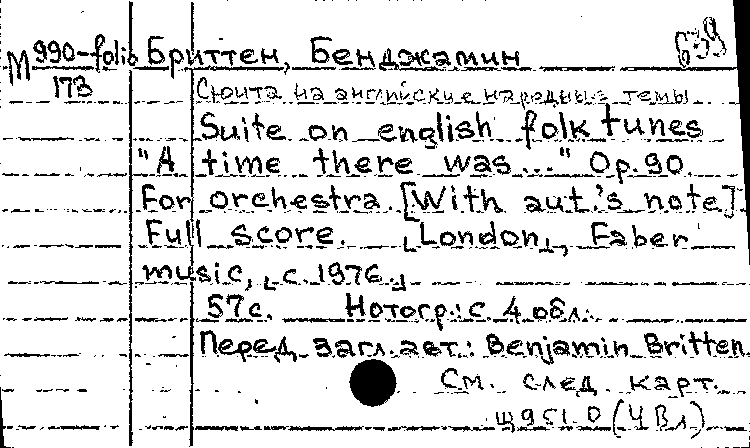 М 990-folio Бриттен, Бенджамин 639
173
Сюита на английские народные темы
Suite on english folk tunes
"A time there was..." Op. 90.
For orchestra. [With aut.'s note].
Full score. [London], Faber
music, [c. 1976.]
57с. Нотогр.: с. 4 обл.
Перед загл. авт.: Benjamin Britten.
См. след. карт.
Щ951.0(4Вл)